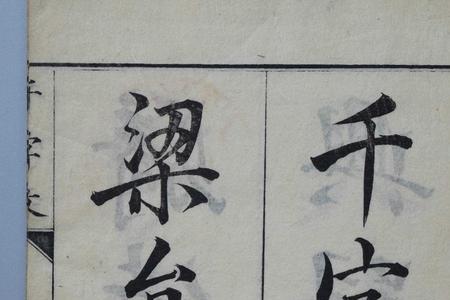 千
梁
千字文